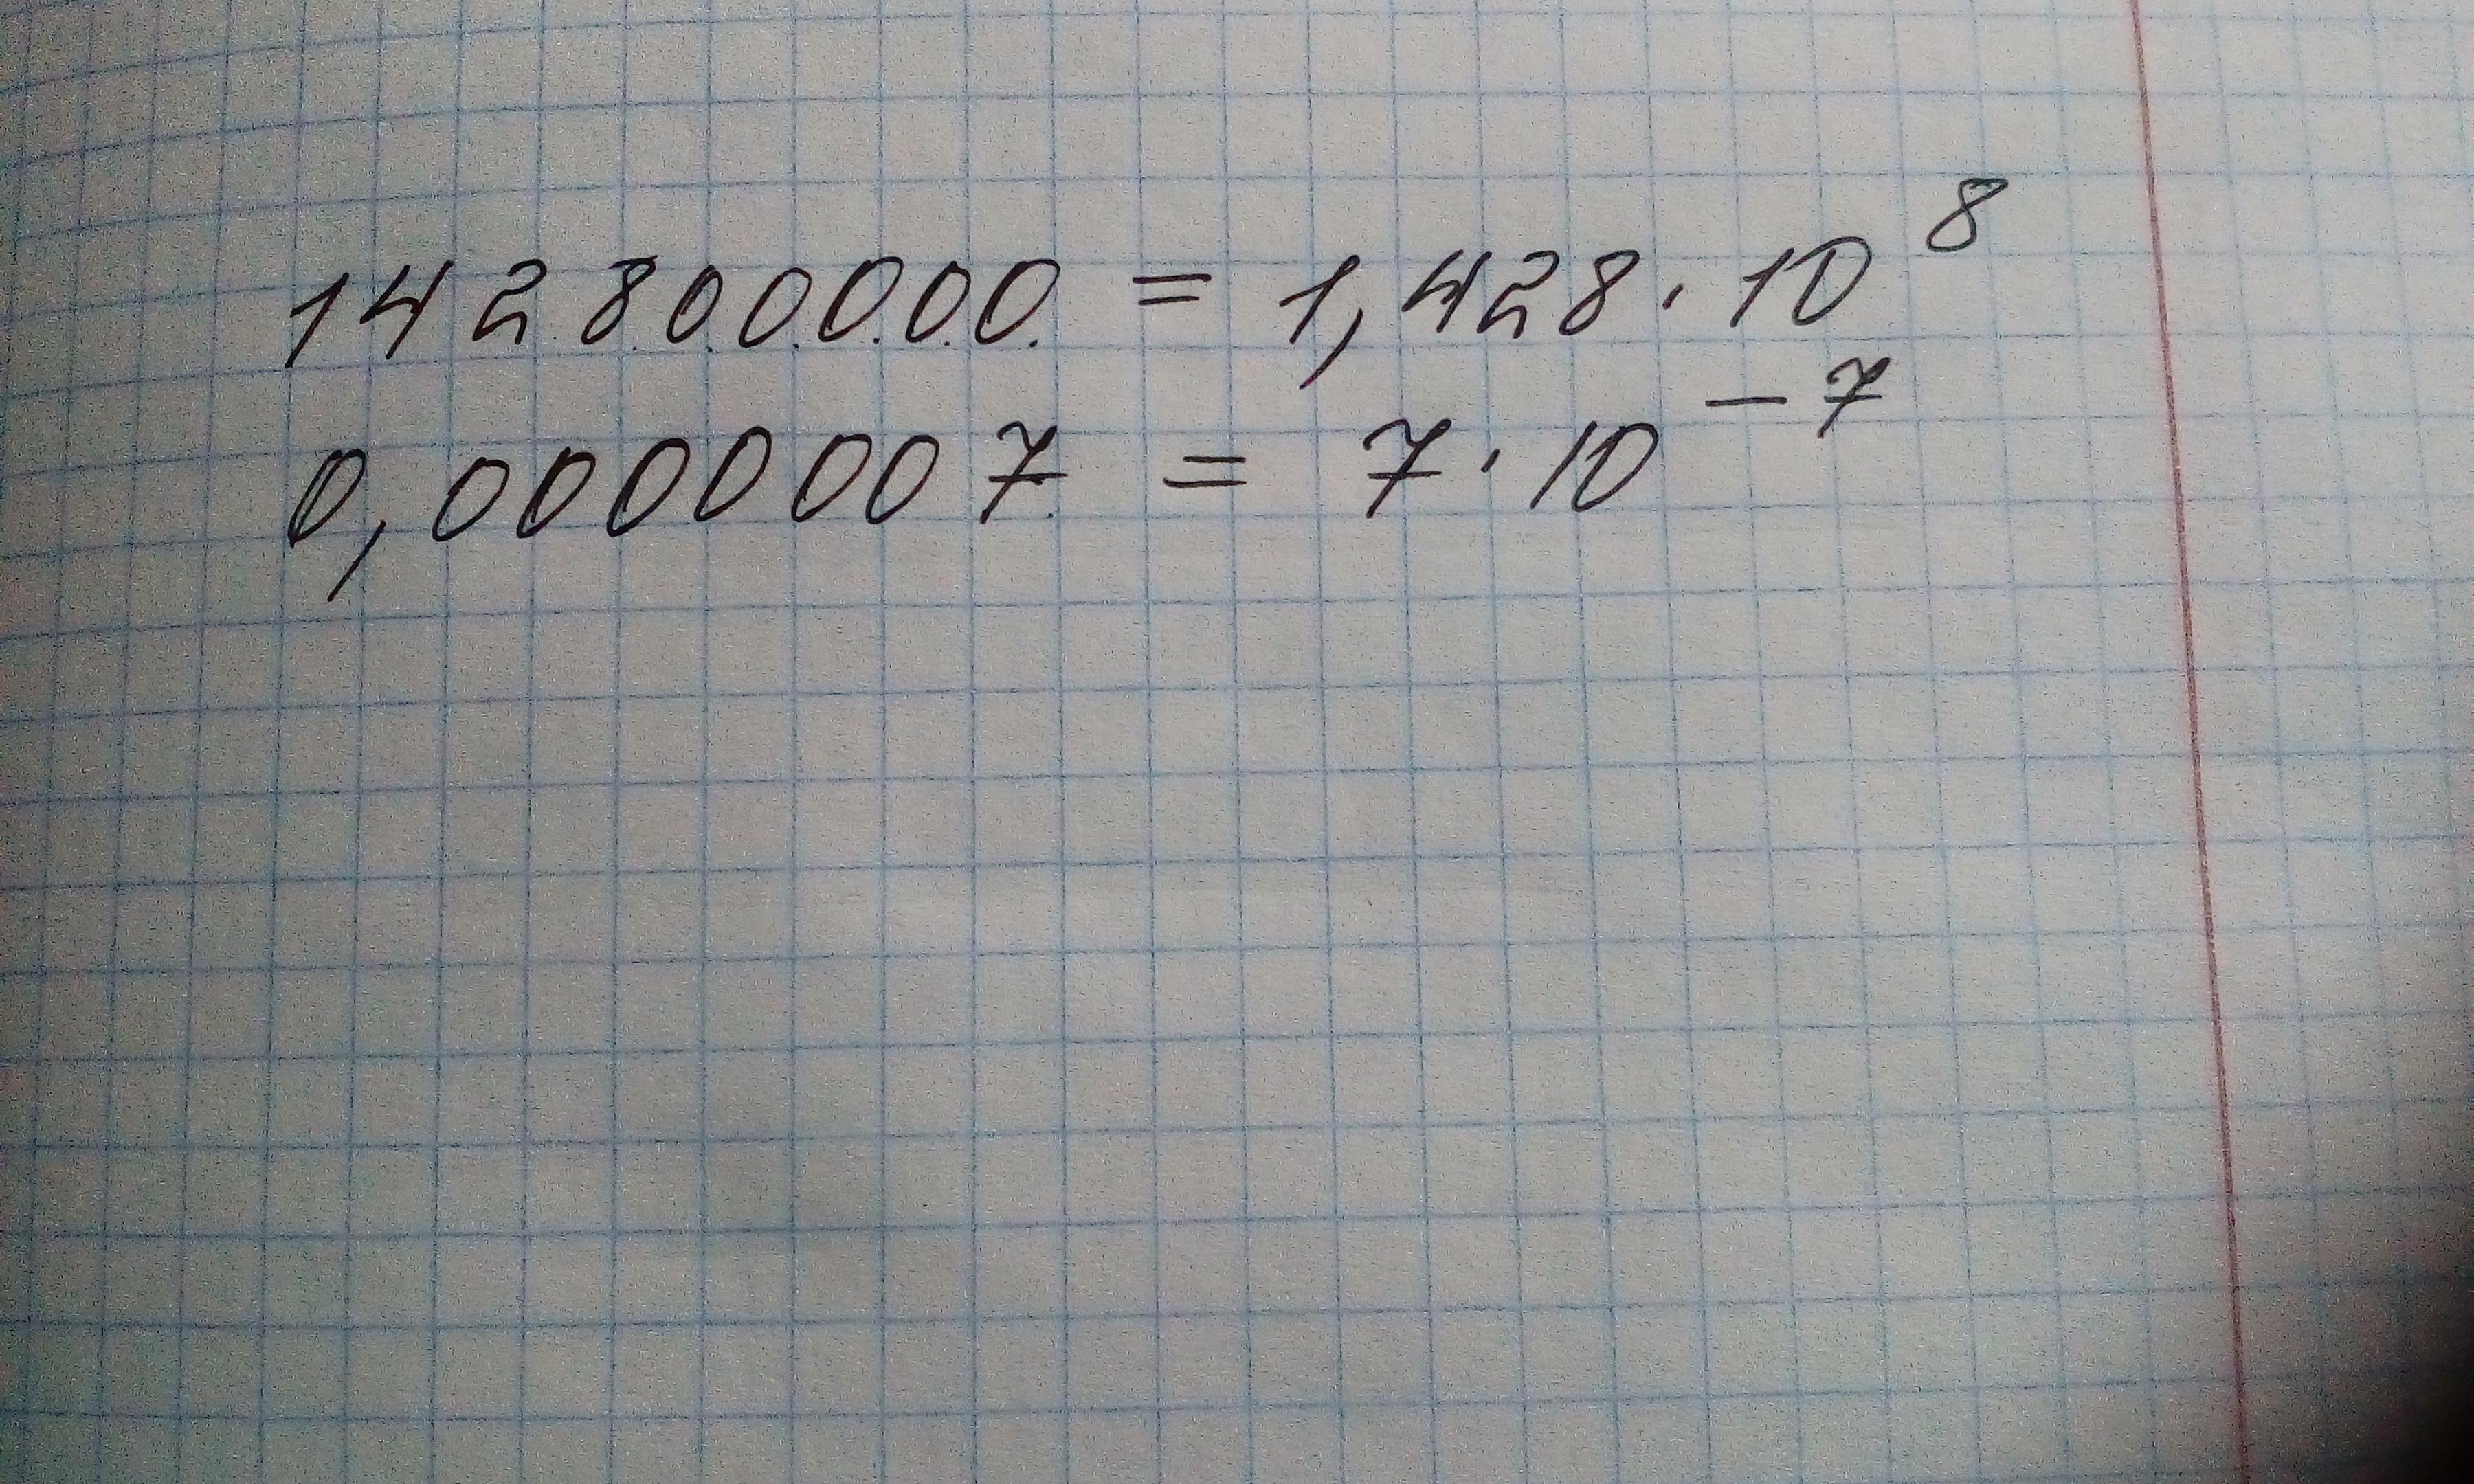 142800000 = 1,428 · 10⁸
0,0000007 = 7 · 10⁻⁷